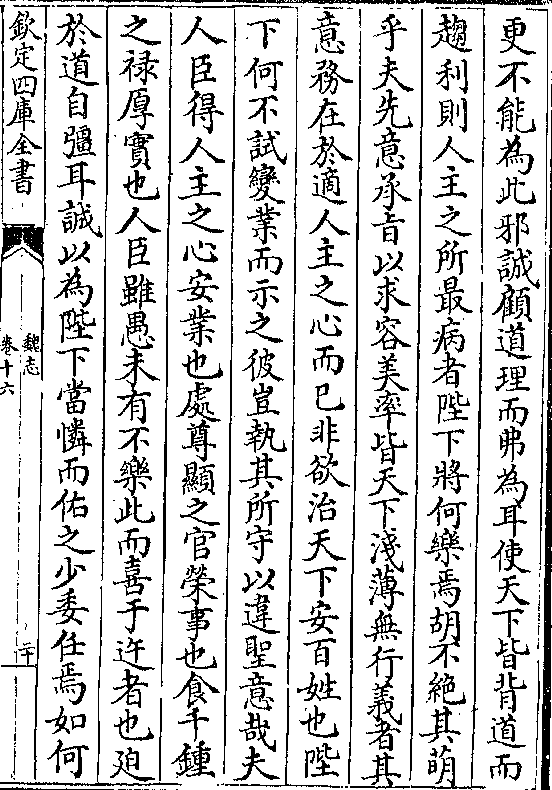 更不能為此邪誠顧道理而弗為耳使天下皆背道而
趨利則人主之所最病者陛下將何樂焉胡不絕其萌
乎夫先意承旨以求容美率皆天下淺薄無行義者其
意務在於適人主之心而已非欲治天下安百姓也陛
下何不試變業而示之彼豈執其所守以違聖意哉夫
人臣得人主之心安業也處尊顯之官榮事也食千鍾
之禄厚實也人臣雖愚未有不樂此而喜于迕者也廹
於道自彊耳誠以為陛下當憐而佑之少委任焉如何
欽定四庫全書
魏志
卷十六
二十